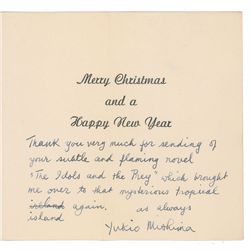 Merry Christmas
and a
Happy New Year
Thank you very much for sending of
your subtle and flaming novel
"The Idols and the Prey" which brought
me over to that mysterious tropical
island again. as always
island
Yukio Mishima